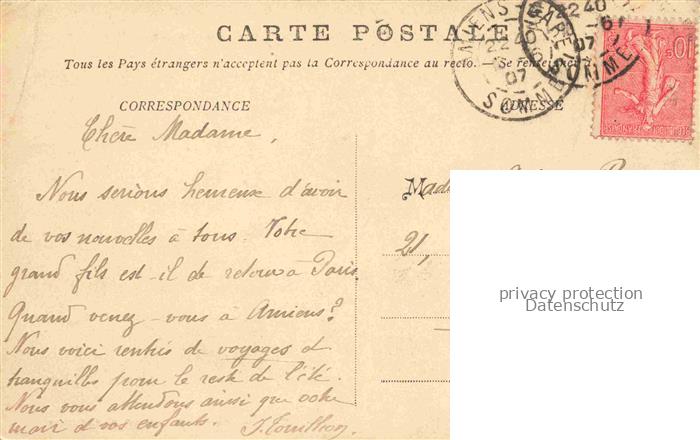 CARTE POSTALE
Tous les Pays étrangers n'acceptent pas la Correspondance au recto. — Se renseigner à
CORRESPONDANCE
ADRESSE
AMIENS-GARE
22 40
07
SOMME
10
Chère Madame,
Nous serions heureux d'avoir
de vos nouvelles à tous. Votre
grand fils est-il de retour à Paris.
Quand venez-vous à Amiens?
Nous voici rentrés de voyages et
tranquilles pour le reste de l'été.
Nous vous attendons ainsi que votre
mari et vos enfants.
Mad
21,
privacy protection
Datenschutz